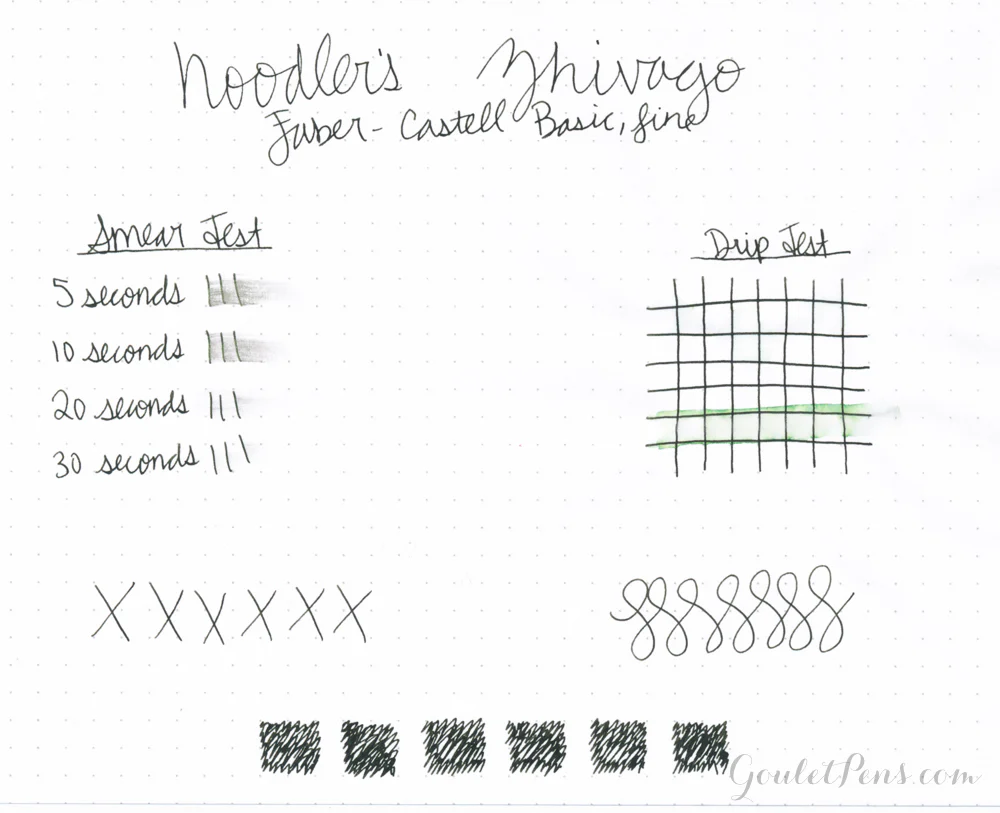 Noodler's Zhivago
Faber-Castell Basic, fine
Smear Test
Drip Test
5 seconds
10 seconds
20 seconds
30 seconds
X X X X X X
GouletPens.com